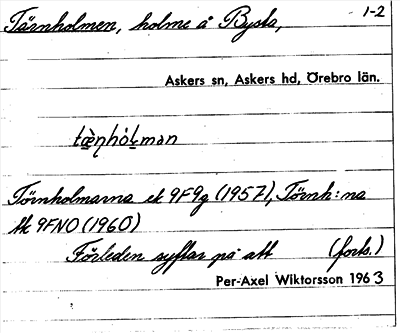 Tärnholmen, holme å Bysta, 1-2
Askers sn, Askers hd, Örebro län.
tæ̀ṇhólmən
Törnholmarna ek 9F9g (1957), Törnh:na
tk 9FNO (1960)
Förleden syftar på att (forts.)
Per-Axel Wiktorsson 1963